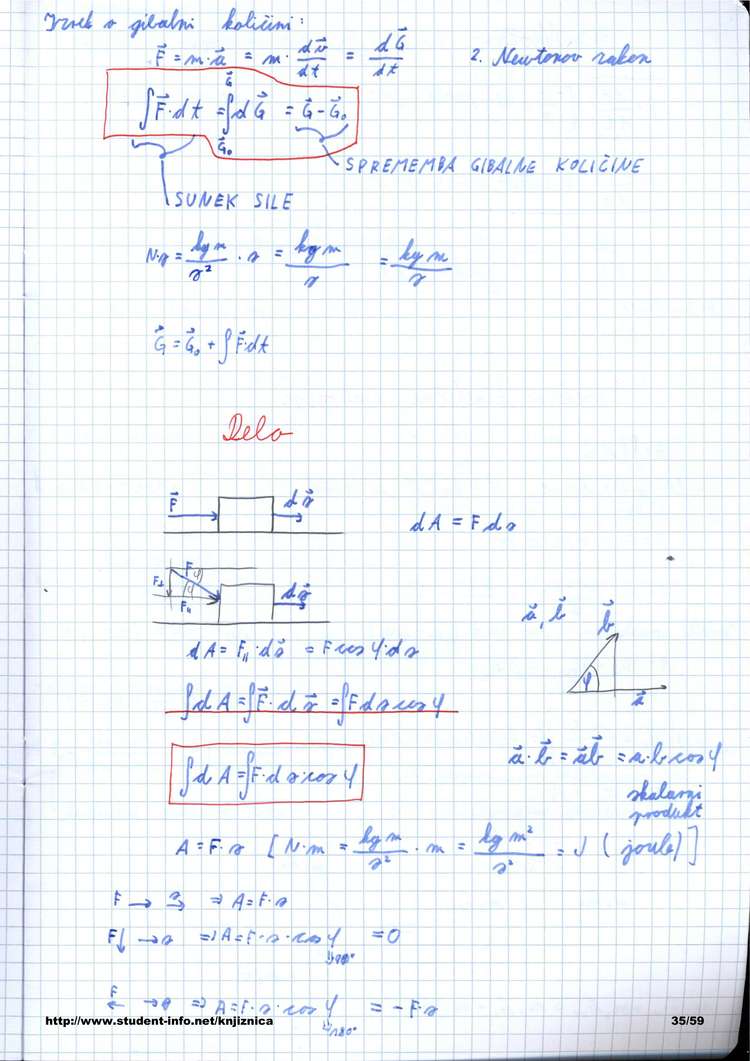 Izrek o gibalni količini:
F⃗ = m·a⃗ = m· dv⃗/dt = dG⃗/dt 2. Newtonov zakon
∫F⃗·dt = ∫dG⃗ = G⃗ - G⃗₀
G⃗
G⃗₀
SPREMEMBA GIBALNE KOLIČINE
SUNEK SILE
N·s = kg m/s² · s = kg m/s = kg m/s
G⃗ = G⃗₀ + ∫F⃗·dt
Delo
F⃗ ds⃗
dA = F ds
F φ
F⊥ φ
F∥ ds⃗
a⃗, b⃗ b⃗
φ a⃗
dA = F∥·ds⃗ = F cos φ·ds
∫dA = ∫F⃗·ds⃗ = ∫F ds cos φ
a⃗·b⃗ = a⃗b⃗ = a·b cos φ
skalarni
produkt
∫dA = ∫F·ds·cos φ
A = F·s [N·m = kg m/s² · m = kg m²/s² = J (joule)]
F → s→ ⇒ A = F·s
F↓ → s ⇒ A = F·s·cos φ = 0
90°
F← → s ⇒ A = F·s·cos φ = -F·s
180°
http://www.student-info.net/knjiznica 35/59